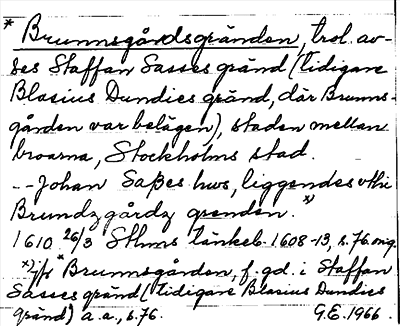 * Brunnsgårdsgränden, trol. av-
ses Staffan Sasses gränd (tidigare
Blasius Dundies gränd, där Brunns-
gården var belägen), staden mellan
broarna, Stockholms stad.
-- Johan Saßes hws, liggendes vthi
Brundzgårdz grenden. x)
1610 26/3 Sthms tänkeb. 1608-13, s. 76 orig.
x) jfr * Brunnsgården, f. gd. i Staffan
Sasses gränd (tidigare Blasius Dundies
gränd) a.a., s. 76. G.E. 1966.